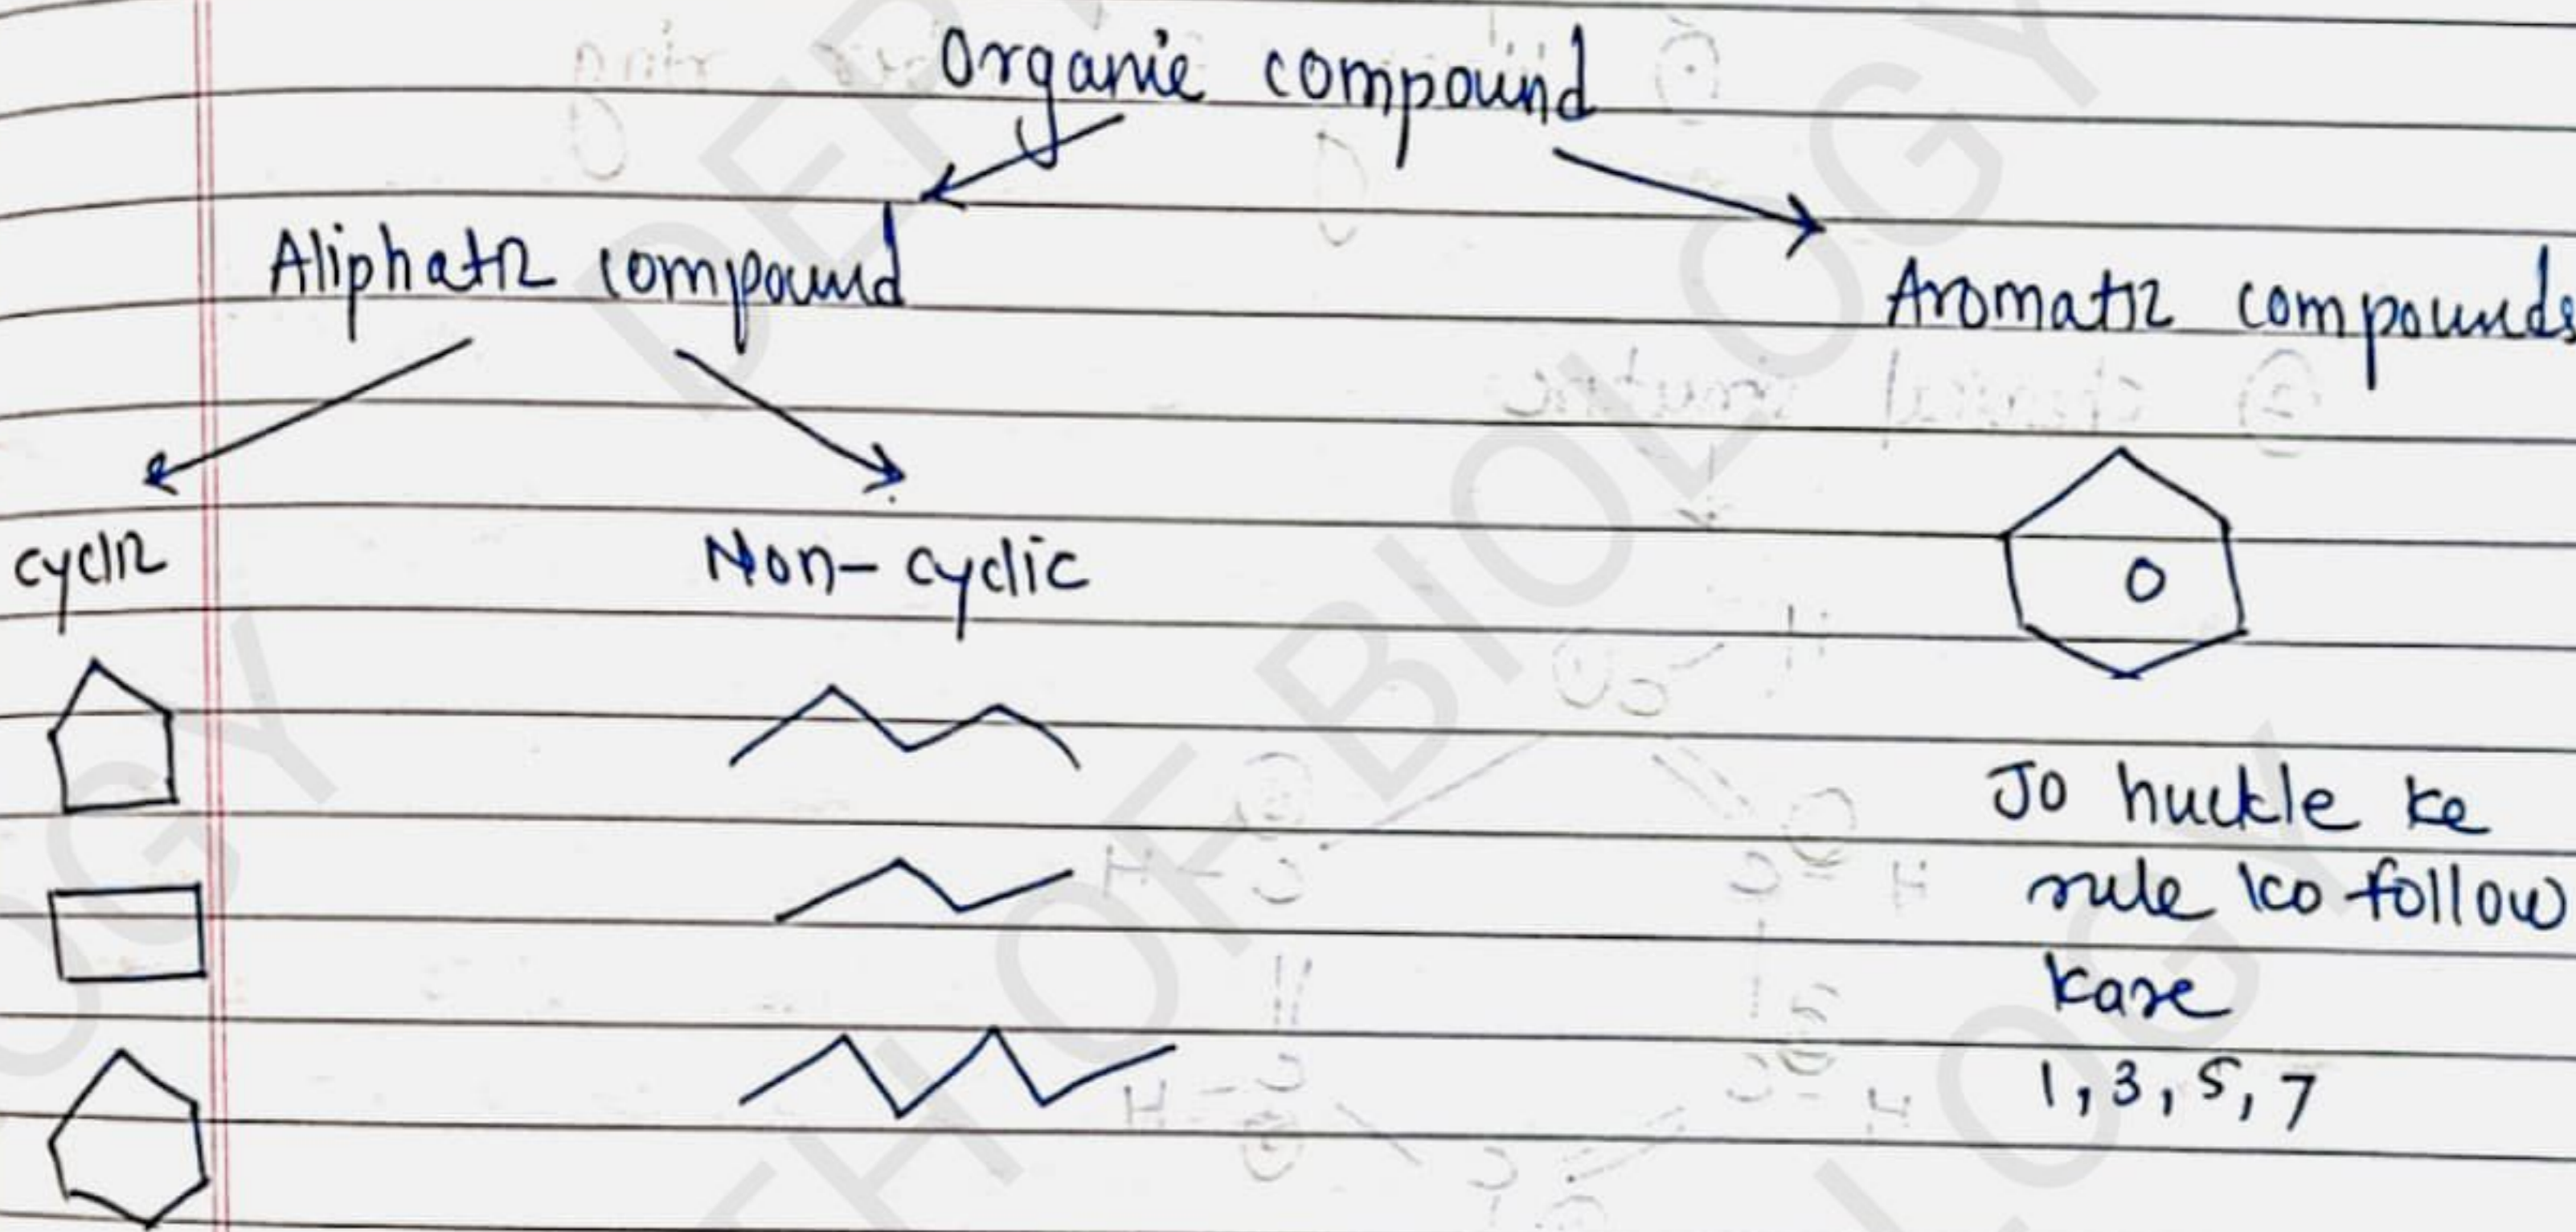 Organic compound
Aliphatic compound
Aromatic compounds
cyclic
Non-cyclic
O
Jo huckle ke
rule ko follow
kare
1, 3, 5, 7
DEPTH OF BIOLOGY